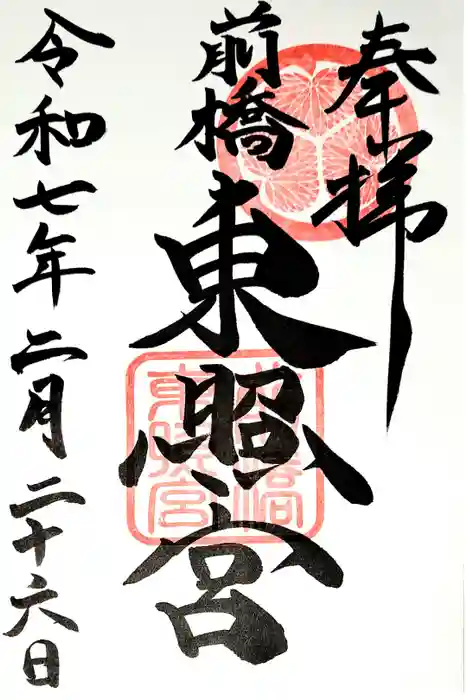 奉拝
前橋
東照宮
令和七年二月二十六日
前橋
東照宮